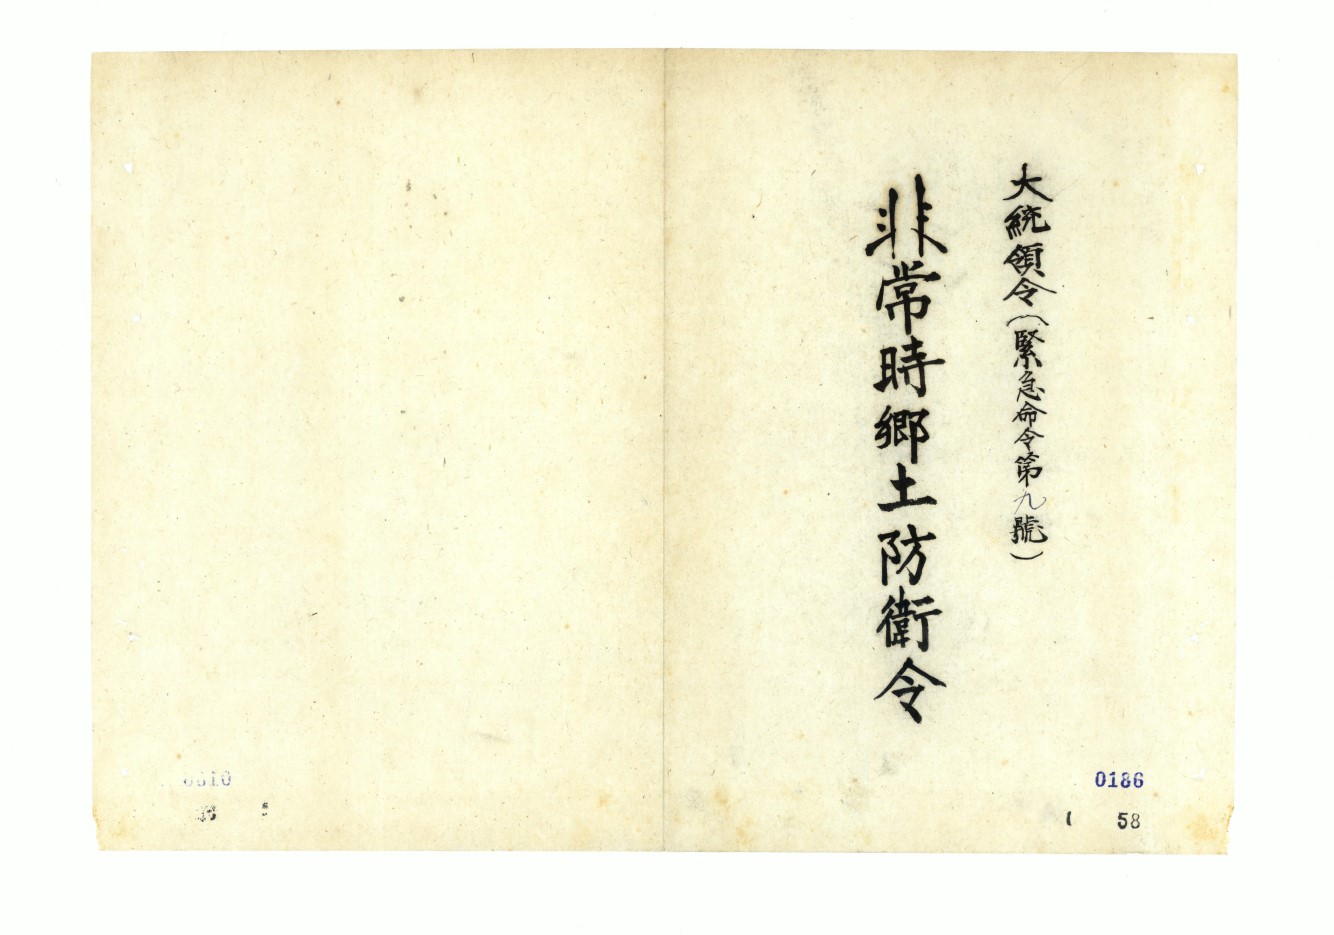 大統領令(緊急命令第九號)
非常時鄉土防衛令
0186
58